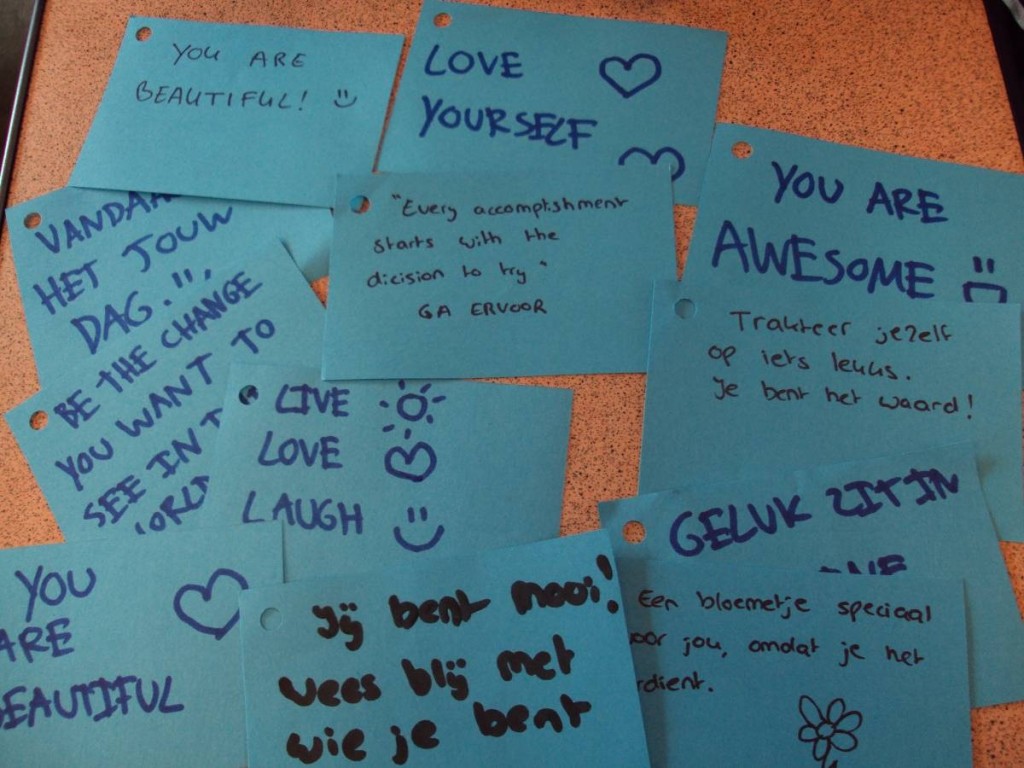 YOU ARE
BEAUTIFUL!
LOVE
YOURSELF
YOU ARE
AWESOME
HET JOUW
DAG.
"Every accomplishment
starts with the
dicision to try"
GA ERVOOR
Trakteer jezelf
op iets leuks.
Je bent het waard!
BE THE CHANGE
YOU WANT TO
SEE IN
LIVE
LOVE
LAUGH
GELUK ZIT IN
YOU
ARE
BEAUTIFUL
Jij bent mooi!
wees blij met
wie je bent
Een bloemetje speciaal
voor jou, omdat je het